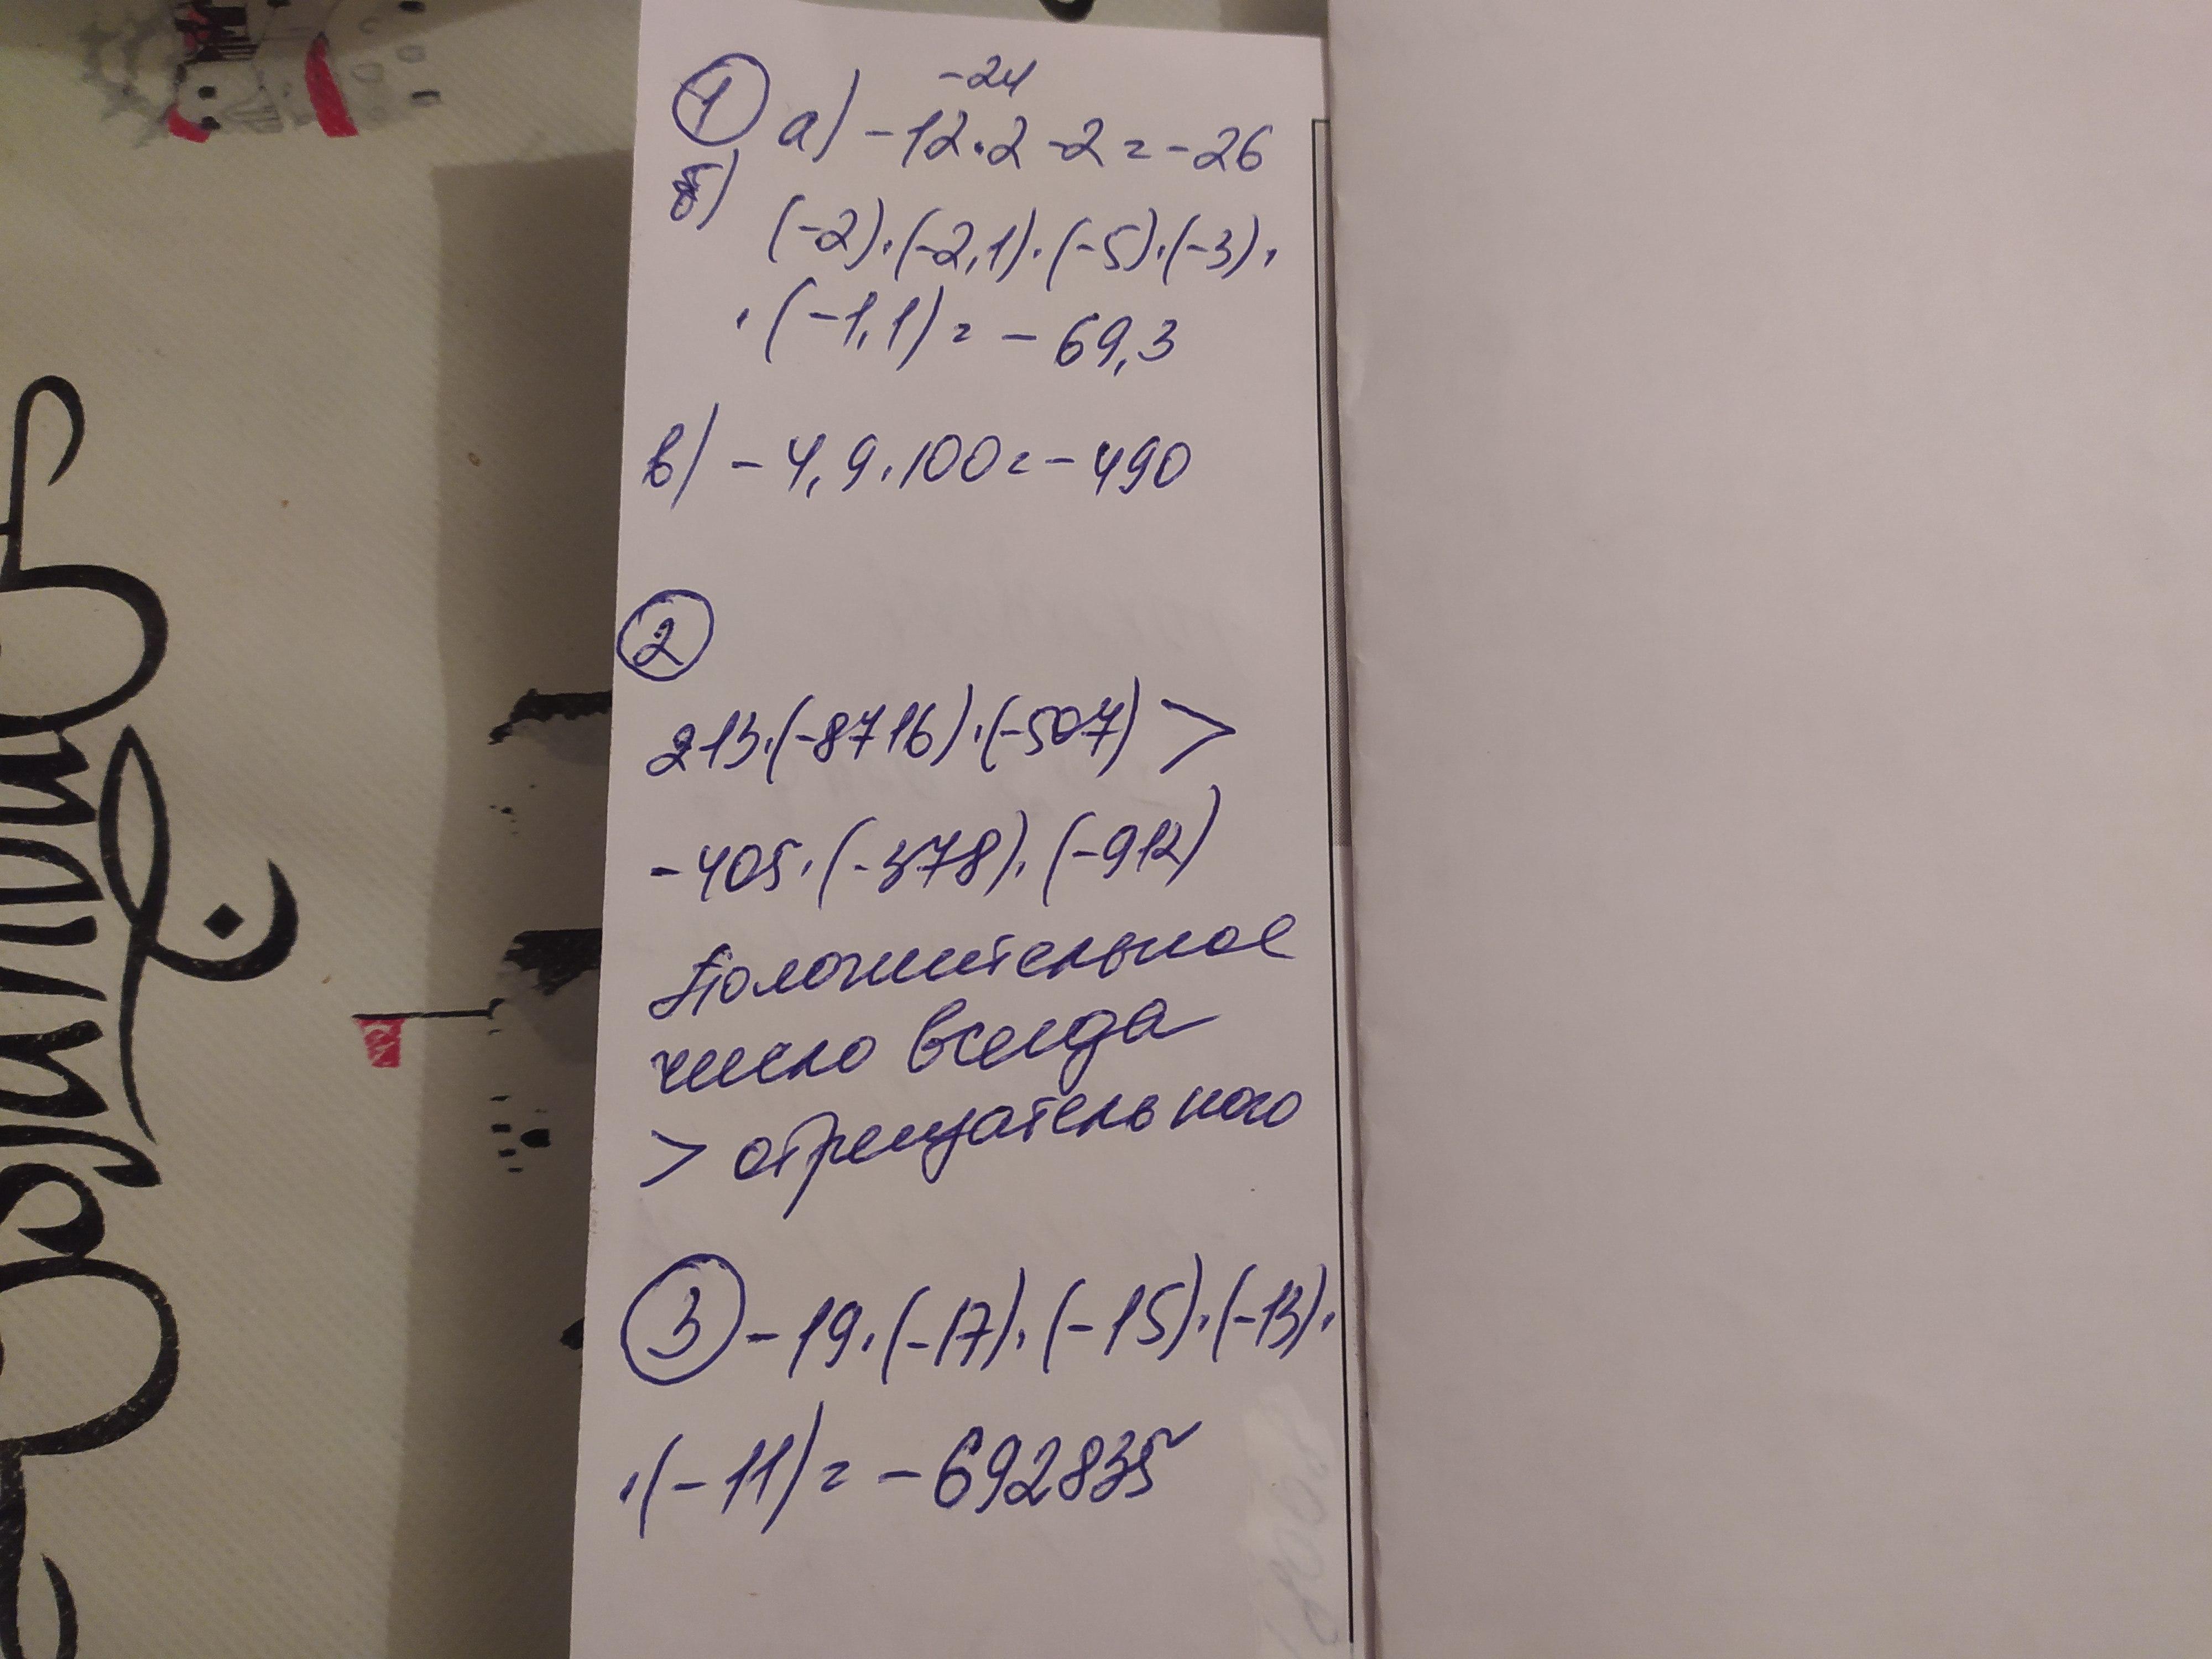 -24
① а) -12·2 -2 = -26
б)
(-2)·(-2,1)·(-5)·(-3)·
·(-1,1) = -69,3
в) -4,9·100 = -490
②
213·(-8716)·(-507) >
-405·(-378)·(-912)
Положительное
число всегда
> отрецательного
③ -19·(-17)·(-15)·(-13)·
·(-11) = -692835